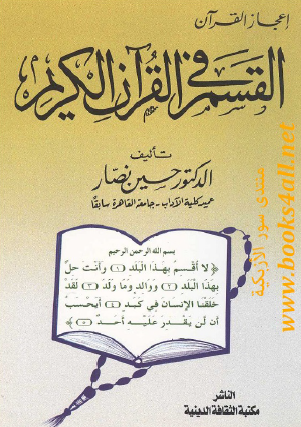 إعجاز القرآن
القسم في القرآن الكريم
تأليف
الدكتور حسين نصار
عميد كلية الآداب - جامعة القاهرة سابقًا
بسم الله الرحمن الرحيم
﴿ لا أقسم بهذا البلد (١) وأنت حل
بهذا البلد (٢) ووالد وما ولد (٣) لقد
خلقنا الإنسان في كبد (٤) أيحسب
أن لن يقدر عليه أحد (٥) ﴾
الناشر
مكتبة الثقافة الدينية
منتدى سور الأزبكية
www.books4all.net